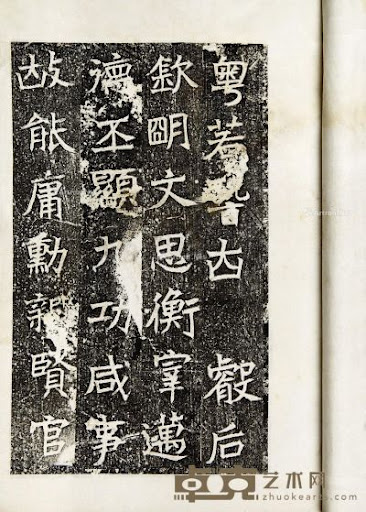 粵若稽古 叡后
欽明文思衡宰邁
德丕顯九功咸事
故能庸勳親賢官
卓克艺术网
zhuokearts.com